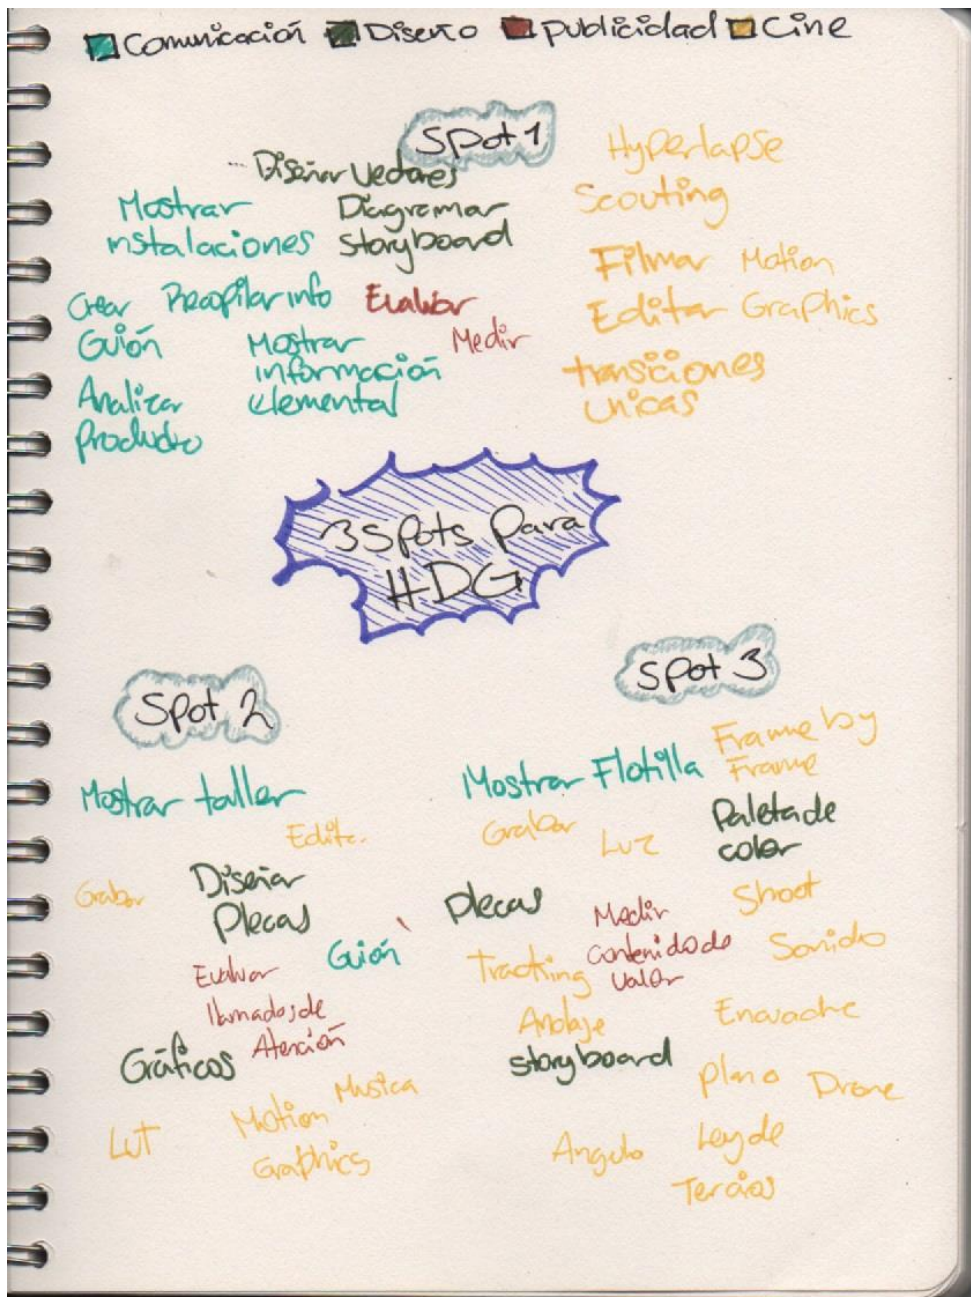 Comunicación Diseño Publicidad Cine
Spot 1
Diseñar Vectores
Diagramar
storyboard
Mostrar
instalaciones
Crear
Guión
Recopilar info
Mostrar
información
elemental
Analizar
Producto
Evaluar
Medir
Hyperlapse
Scouting
Filmar
Editar
Motion
Graphics
transiciones
unicas
3 Spots Para
HDG
Spot 2
Mostrar taller
Edita.
Grabar
Diseñar
Plecas
Guión
Evaluar
llamados de
Atención
Gráficos
Musica
LUT
Motion
Graphics
Spot 3
Mostrar Flotilla
Frame by
Frame
Grabar
Luz
Paleta de
color
Plecas
Medir
contenido de
valor
Shoot
Sonido
Tracking
storyboard
Encuadre
Plano
Drone
Angulo
Ley de
Tercios